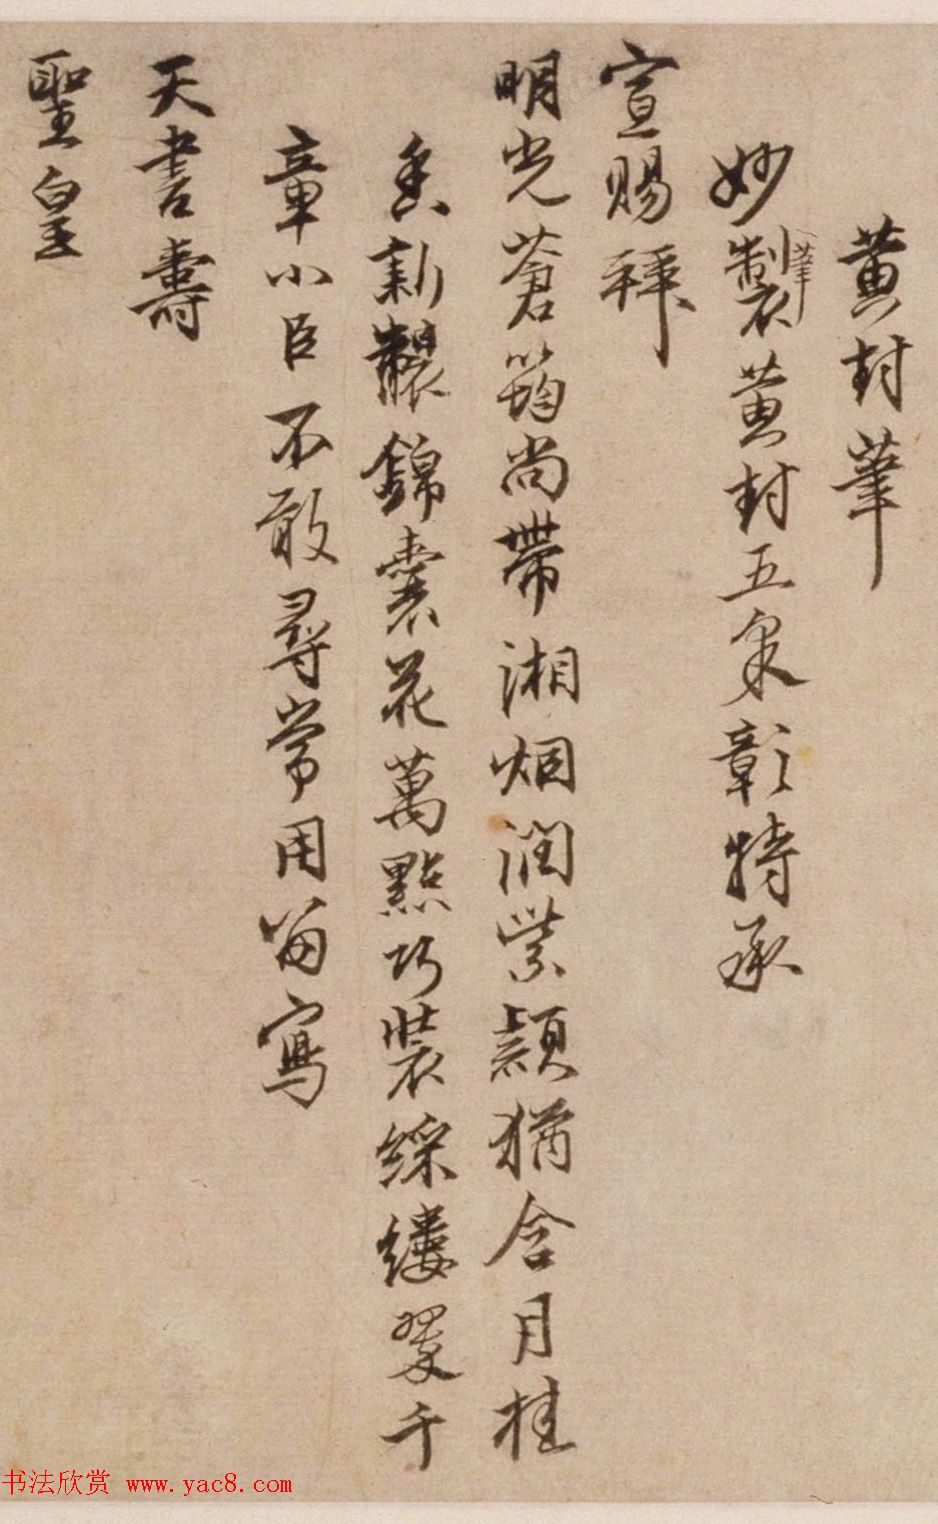 黄封筆
妙製黄封五采彰特承
筆
宣賜拜
明光蒼筠尚帶湘烟潤紫穎猶含月桂
香新製錦囊花萬點巧裝綵縷翠千
章小臣不敢尋常用留寫
天書壽
聖皇
书法欣赏 www.yac8.com